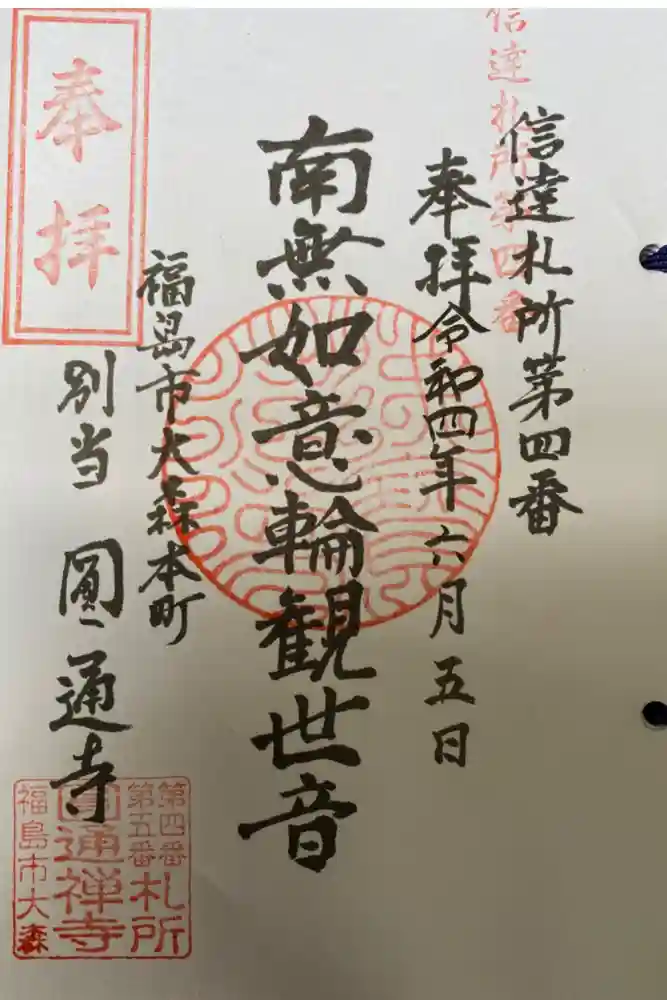 信達札所第四番
信達札所第四番
奉拝令和四年六月五日
南無如意輪観世音
福島市大森本町
別当 圓通寺
奉拝
第四番
第五番
札所
圓通禅寺
福島市大森